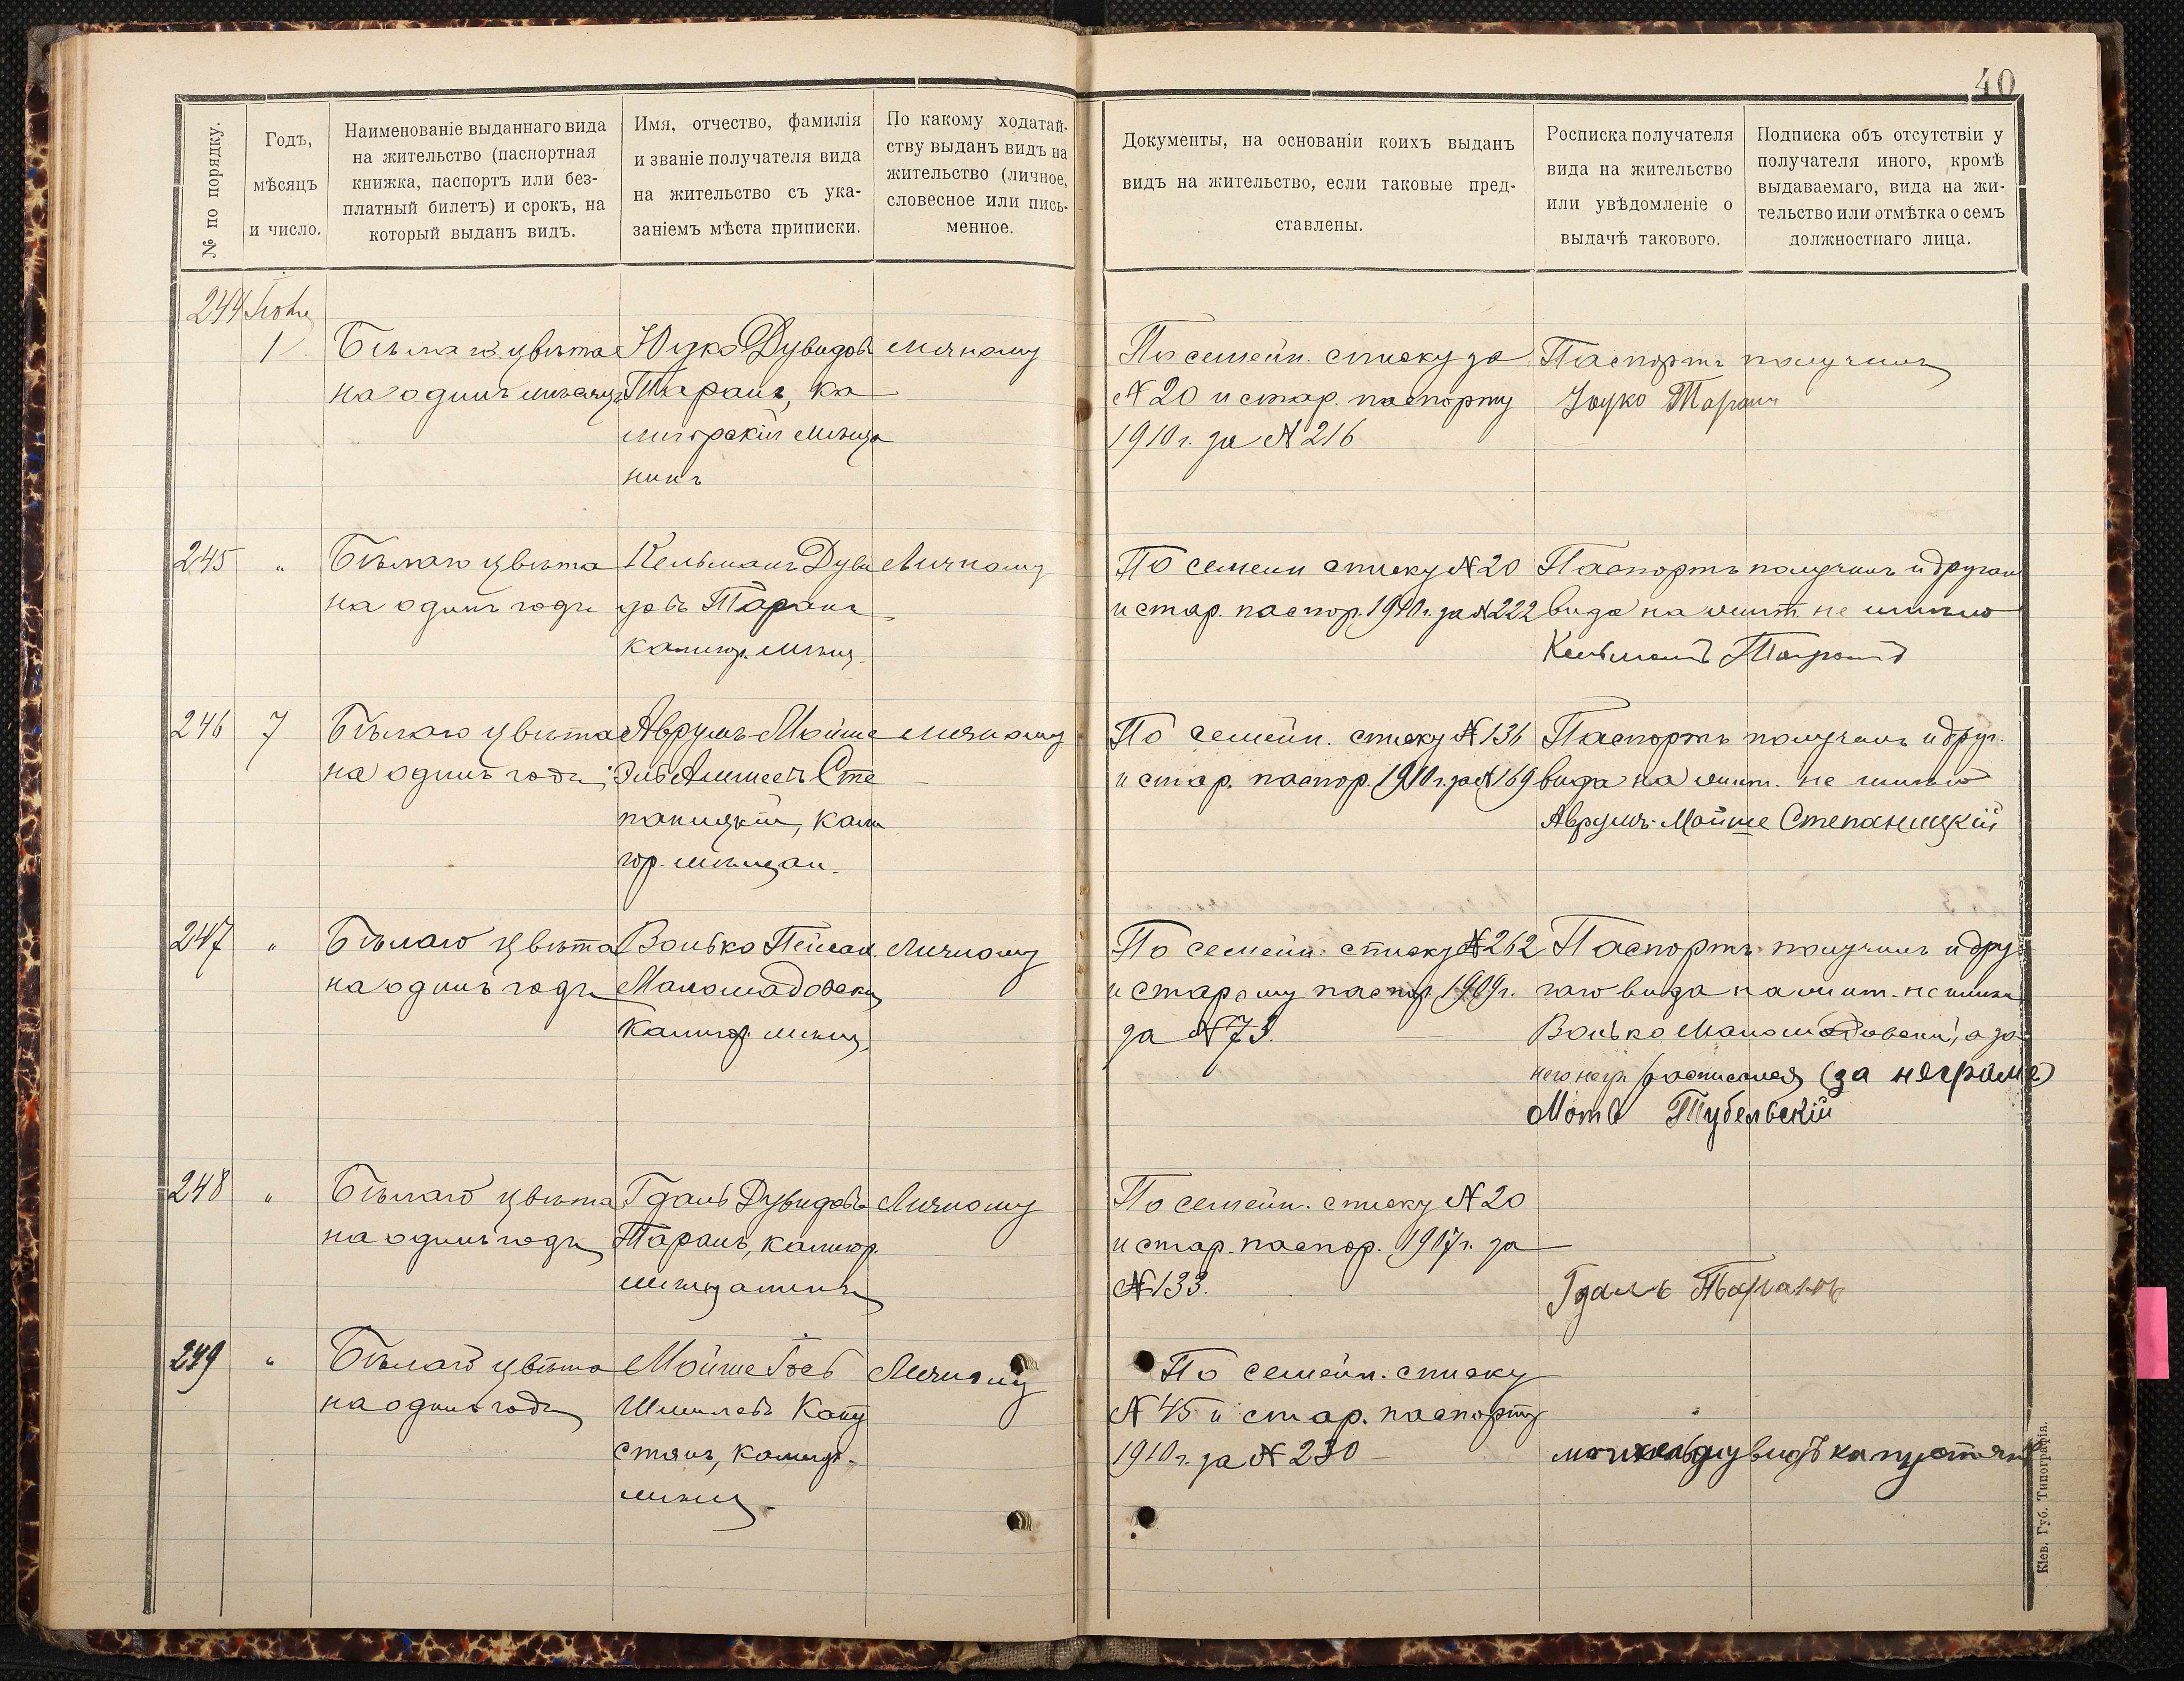 40
№ по порядку.
Годъ,
мѣсяцъ
и число.
Наименованіе выданнаго вида
на жительство (паспортная
книжка, паспортъ или без-
платный билетъ) и срокъ, на
который выданъ видъ.
Имя, отчество, фамилія
и званіе получателя вида
на жительство съ ука-
заніемъ мѣста приписки.
По какому ходатай-
ству выданъ видъ на
жительство (личное,
словесное или пись-
менное.
Документы, на основаніи коихъ выданъ
видъ на жительство, если таковые пред-
ставлены.
Росписка получателя
вида на жительство
или увѣдомленіе о
выдачѣ такового.
Подписка объ отсутствіи у
получателя иного, кромѣ
выдаваемаго, вида на жи-
тельство или отмѣтка о семъ
должностнаго лица.
244
1
Бѣлаго цвѣта
на одинъ мѣсяцъ
Юцко Дувидовъ
Таранъ, ка
лигорскій мѣща
нинъ
личному
По семейн. списку за
№ 20 и стар. паспорту
1910 г. за № 216
Паспортъ получилъ
Юцко Таранъ
245 "
Бѣлаго цвѣта
на одинъ годъ
Кельманъ Дуви
довъ Таранъ
калигор. мѣщ.
Личному
По семейн списку № 20
и стар. паспор. 1910 г. за № 222
Паспортъ получилъ и другаго
вида на жит. не имѣю
Кельманъ Таранъ
246 7
Бѣлаго цвѣта
на одинъ годъ
Аврумъ-Мойше
Сте
паницкій, кали
гор. мѣщан.
личному
По семейн. списку № 136
и стар. паспор. 1910 г. за № 169
Паспортъ получилъ и друг.
вида на жит. не имѣю
Аврумъ-Мойше Степаницкій
247 "
Бѣлаго цвѣта
на одинъ годъ
Волько Пейсах.
Маломадовскій
Калигор. мѣщ.
Личному
По семейн. списку № 262
и старому паспор. 1909 г.
за № 73.
Паспортъ получилъ и дру
гаго вида на жит. не имѣю
Волько Маломадовскій, а за
него негр. расписался (за неграм.)
Мотъ Тубельскій
248 "
Бѣлаго цвѣта
на одинъ годъ
Гдаль Дувидовъ
Таранъ, калигор.
мѣщанинъ
Личному
По семейн. списку № 20
и стар. паспор. 1907 г. за
№ 133.
Гдаль Таранъ
249 "
Бѣлаго цвѣта
на одинъ годъ
Мойше
Шмилевъ Капу
стянъ, калигор.
мѣщ.
Личному
По семейн. списку
№ 45 и стар. паспорту
1910 г. за № 230
капустян
Кіев. Губ. Типографія.